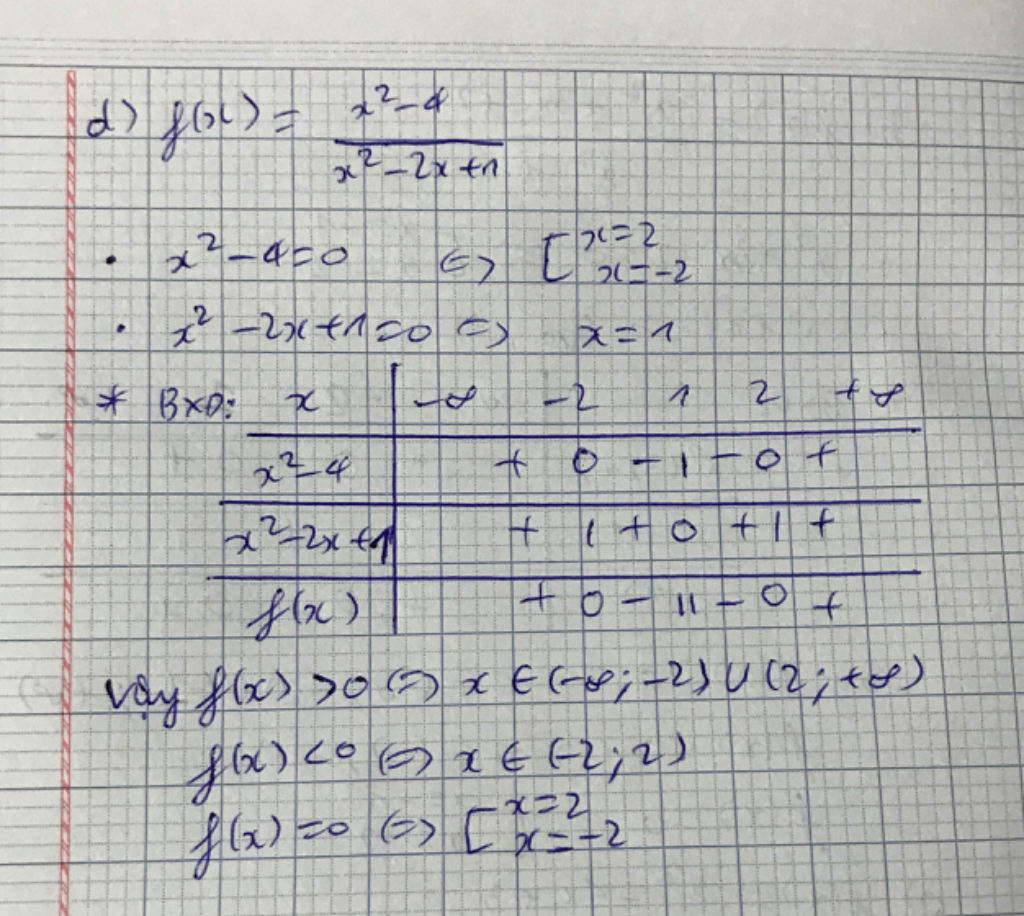 d) f(x) = x²-4 / x²-2x+1
. x²-4=0 <=> [x=2 x=-2
. x²-2x+1=0 <=> x=1
* BXD: x | -∞ -2 1 2 +∞
x²-4 | + 0 - | - 0 +
x²-2x+1 | + | + 0 + | +
f(x) | + 0 - || - 0 +
Vậy f(x) >0 <=> x ∈ (-∞; -2) ∪ (2; +∞)
f(x) <0 <=> x ∈ (-2; 2)
f(x) =0 <=> [x=2 x=-2